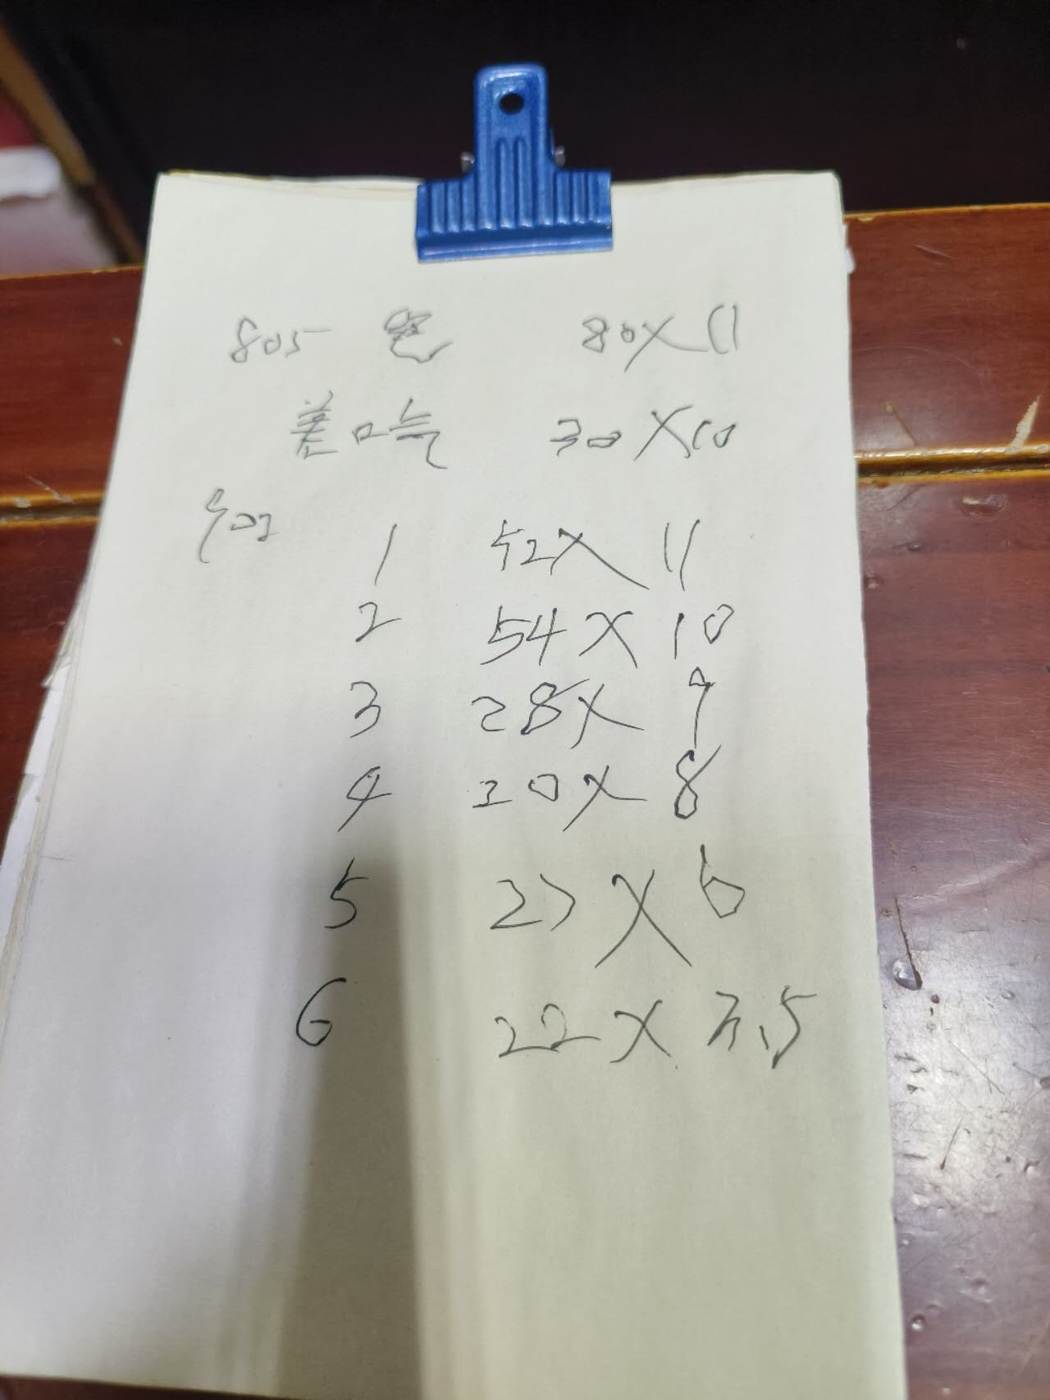 805 80X11
差口气 30X10
1 52X 11
2 54X 10
3 28X 9
4 20X 8
5 27X 6
6 22X 3.5